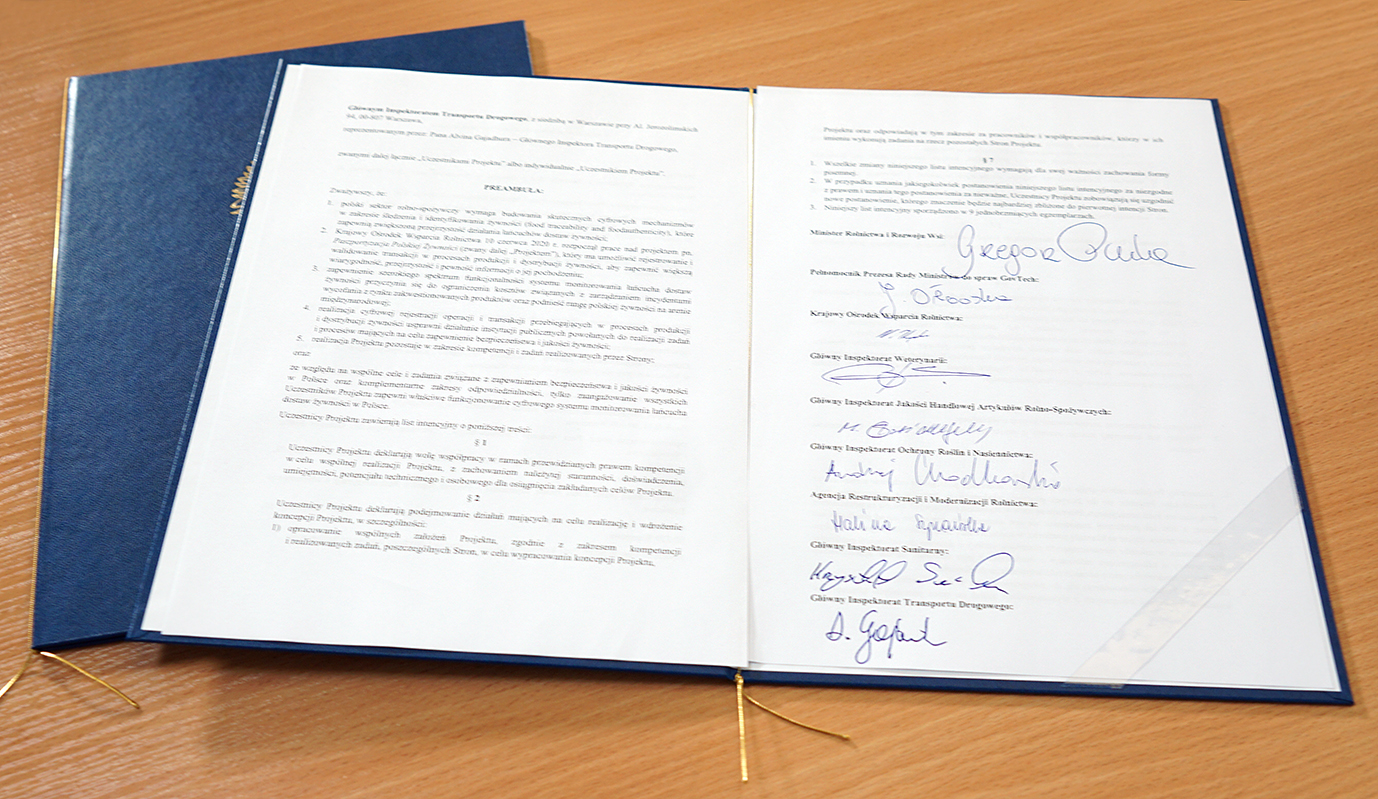 Głównym Inspektoratem Transportu Drogowego, z siedzibą w Warszawie przy Al. Jerozolimskich
94, 00-807 Warszawa,
reprezentowanym przez: Pana Alvina Gajadhura – Głównego Inspektora Transportu Drogowego,
zwanymi dalej łącznie „Uczestnikami Projektu” albo indywidualnie „Uczestnikiem Projektu”.
PREAMBUŁA:
Zważywszy, że:
1. polski sektor rolno-spożywczy wymaga budowania skutecznych cyfrowych mechanizmów
w zakresie śledzenia i identyfikowania żywności (food traceability and foodauthenticity), które
zapewnią zwiększoną przejrzystość działania łańcuchów dostaw żywności;
2. Krajowy Ośrodek Wsparcia Rolnictwa 10 czerwca 2020 r. rozpoczął prace nad projektem pn.
Paszportyzacja Polskiej Żywności (zwany dalej „Projektem”), który ma umożliwić rejestrowanie i
walidowanie transakcji w procesach produkcji i dystrybucji żywności, aby zapewnić większą
wiarygodność, przejrzystość i pewność informacji o jej pochodzeniu;
3. zapewnienie szerokiego spektrum funkcjonalności systemu monitorowania łańcucha dostaw
żywności przyczyni się do ograniczenia kosztów związanych z zarządzaniem incydentami
wycofania z rynku zakwestionowanych produktów oraz podnieść rangę polskiej żywności na arenie
międzynarodowej;
4. realizacja cyfrowej rejestracji operacji i transakcji przebiegających w procesach produkcji
i dystrybucji żywności usprawni działanie instytucji publicznych powołanych do realizacji zadań
i procesów mających na celu zapewnienie bezpieczeństwa i jakości żywności;
5. realizacja Projektu pozostaje w zakresie kompetencji i zadań realizowanych przez Strony;
oraz
ze względu na wspólne cele i zadania związane z zapewnieniem bezpieczeństwa i jakości żywności
w Polsce oraz komplementarne zakresy odpowiedzialności, tylko zaangażowanie wszystkich
Uczestników Projektu zapewni właściwe funkcjonowanie cyfrowego systemu monitorowania łańcucha
dostaw żywności w Polsce.
Uczestnicy Projektu zawierają list intencyjny o poniższej treści:
§ 1
Uczestnicy Projektu deklarują wolę współpracy w ramach przewidzianych prawem kompetencji
w celu wspólnej realizacji Projektu, z zachowaniem należytej staranności, doświadczenia,
umiejętności, potencjału technicznego i osobowego dla osiągnięcia zakładanych celów Projektu.
§ 2
Uczestnicy Projektu deklarują podejmowanie działań mających na celu realizację i wdrożenie
koncepcji Projektu, w szczególności:
1) opracowanie wspólnych założeń Projektu, zgodnie z zakresem kompetencji
i realizowanych zadań, poszczególnych Stron, w celu wypracowania koncepcji Projektu,
Projektu oraz odpowiadają w tym zakresie za pracowników i współpracowników, którzy w ich
imieniu wykonują zadania na rzecz pozostałych Stron Projektu.
§ 7
1. Wszelkie zmiany niniejszego listu intencyjnego wymagają dla swej ważności zachowania formy
pisemnej.
2. W przypadku uznania jakiegokolwiek postanowienia niniejszego listu intencyjnego za niezgodne
z prawem i uznania tego postanowienia za nieważne, Uczestnicy Projektu zobowiązują się uzgodnić
nowe postanowienie, którego znaczenie będzie najbardziej zbliżone do pierwotnej intencji Stron.
3. Niniejszy list intencyjny sporządzono w 9 jednobrzmiących egzemplarzach.
Minister Rolnictwa i Rozwoju Wsi:
Grzegorz Puda
Pełnomocnik Prezesa Rady Ministrów do spraw GovTech:
Krajowy Ośrodek Wsparcia Rolnictwa:
Główny Inspektorat Weterynarii:
Główny Inspektorat Jakości Handlowej Artykułów Rolno-Spożywczych:
Główny Inspektorat Ochrony Roślin i Nasiennictwa:
Andrzej Chodkowski
Agencja Restrukturyzacji i Modernizacji Rolnictwa:
Halina Szymańska
Główny Inspektorat Sanitarny:
Krzysztof
Główny Inspektorat Transportu Drogowego:
A. Gajadhur